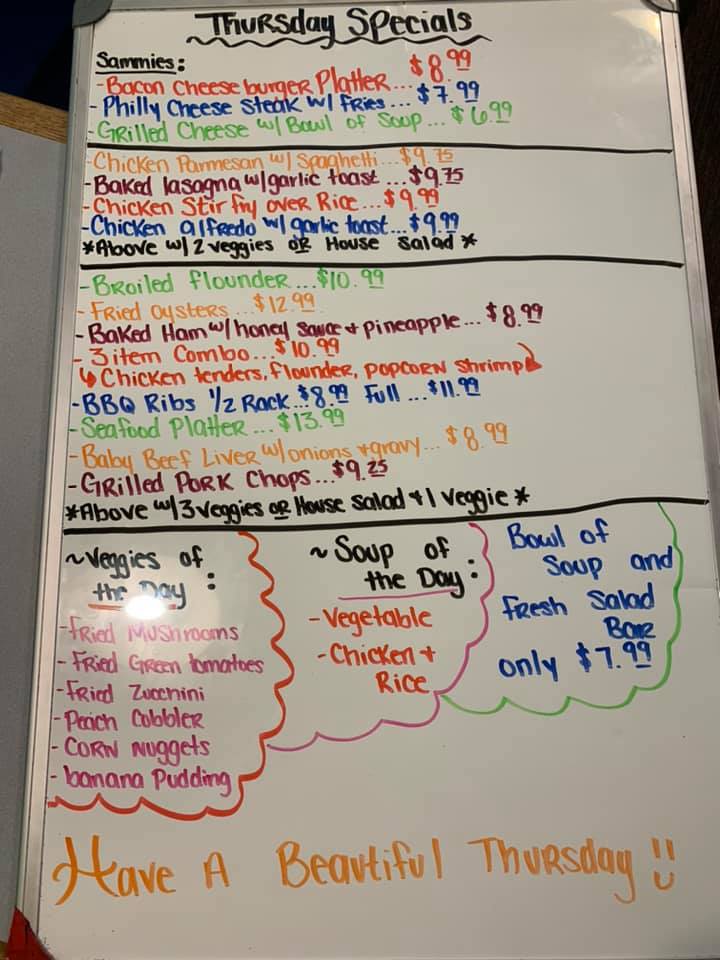 Thursday Specials
Sammies:
-Bacon Cheeseburger Platter... $8.99
-Philly Cheese Steak w/ fries... $7.99
-Grilled Cheese w/ Bowl of Soup... $6.99
-Chicken Parmesan w/ Spaghetti...$9.75
-Baked lasagna w/garlic toast ...$9.75
-Chicken Stir fry over Rice...$9.99
-Chicken alfredo w/ garlic toast...$9.99
*Above w/ 2 veggies OR House Salad*
-Broiled flounder...$10.99
-Fried oysters...$12.99
-Baked Ham w/honey sauce + pineapple...$8.99
-3 item Combo...$10.99
↳ Chicken tenders, flounder, popcorn shrimp
-BBQ Ribs 1/2 Rack $8.99 Full ...$11.99
-Seafood Platter...$13.99
-Baby Beef Liver w/onions + gravy... $8.99
-Grilled Pork Chops...$9.25
*Above w/3 veggies OR House Salad + 1 Veggie*
~Veggies of
the Day:
-Fried Mushrooms
-Fried Green tomatoes
-Fried Zucchini
-Peach Cobbler
-Corn Nuggets
-banana Pudding
~Soup of
the Day:
-Vegetable
-Chicken +
Rice
Bowl of
Soup and
fresh Salad
Bar
only $7.99
Have A Beautiful Thursday !!